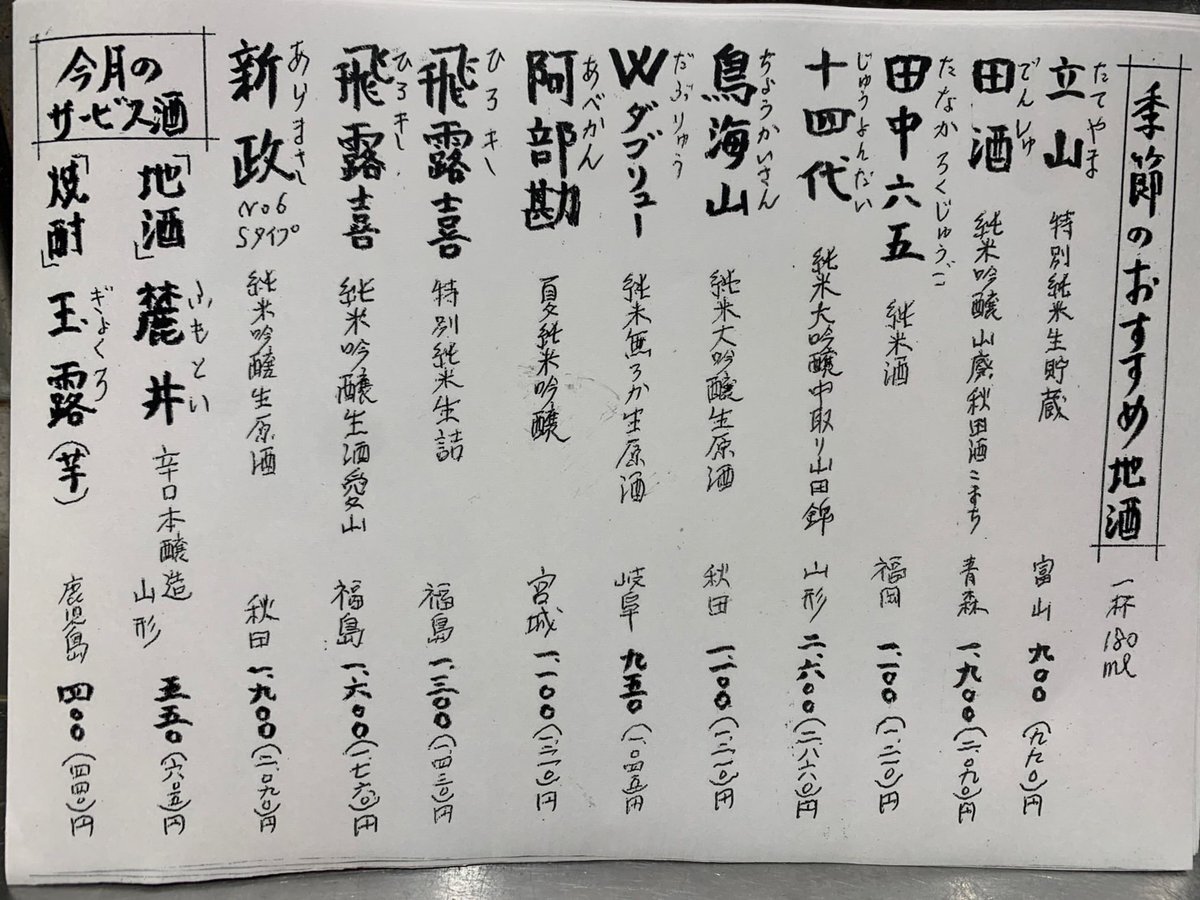 季節のおすすめ地酒 一杯180ml
立山 たてやま 特別純米生貯蔵 富山 九〇〇(九九〇)円
田酒 でんしゅ 純米吟醸山廃秋田酒こまち 青森 一、九〇〇(二、〇九〇)円
田中六五 たなかろくじゅうご 純米酒 福岡 一、一〇〇(一、二一〇)円
十四代 じゅうよんだい 純米大吟醸中取り山田錦 山形 二、六〇〇(二、八六〇)円
鳥海山 ちょうかいさん 純米大吟醸生原酒 秋田 一、一〇〇(一、二一〇)円
Wダブリュー だぶりゅう 純米無ろか生原酒 岐阜 九五〇(一、〇四五)円
阿部勘 あべかん 夏純米吟醸 宮城 一、一〇〇(一、二一〇)円
飛露喜 ひろき 特別純米生詰 福島 一、三〇〇(一、四三〇)円
飛露喜 ひろき 純米吟醸生酒愛山 福島 一、六〇〇(一、七六〇)円
新政 あらまさ No6 Sタイプ 純米吟醸生原酒 秋田 一、九〇〇(二、〇九〇)円
今月のサービス酒
「地酒」麓井 ふもとい 辛口本醸造 山形 五五〇(六〇五)円
「焼酎」玉露 ぎょくろ(芋) 鹿児島 四〇〇(四四〇)円